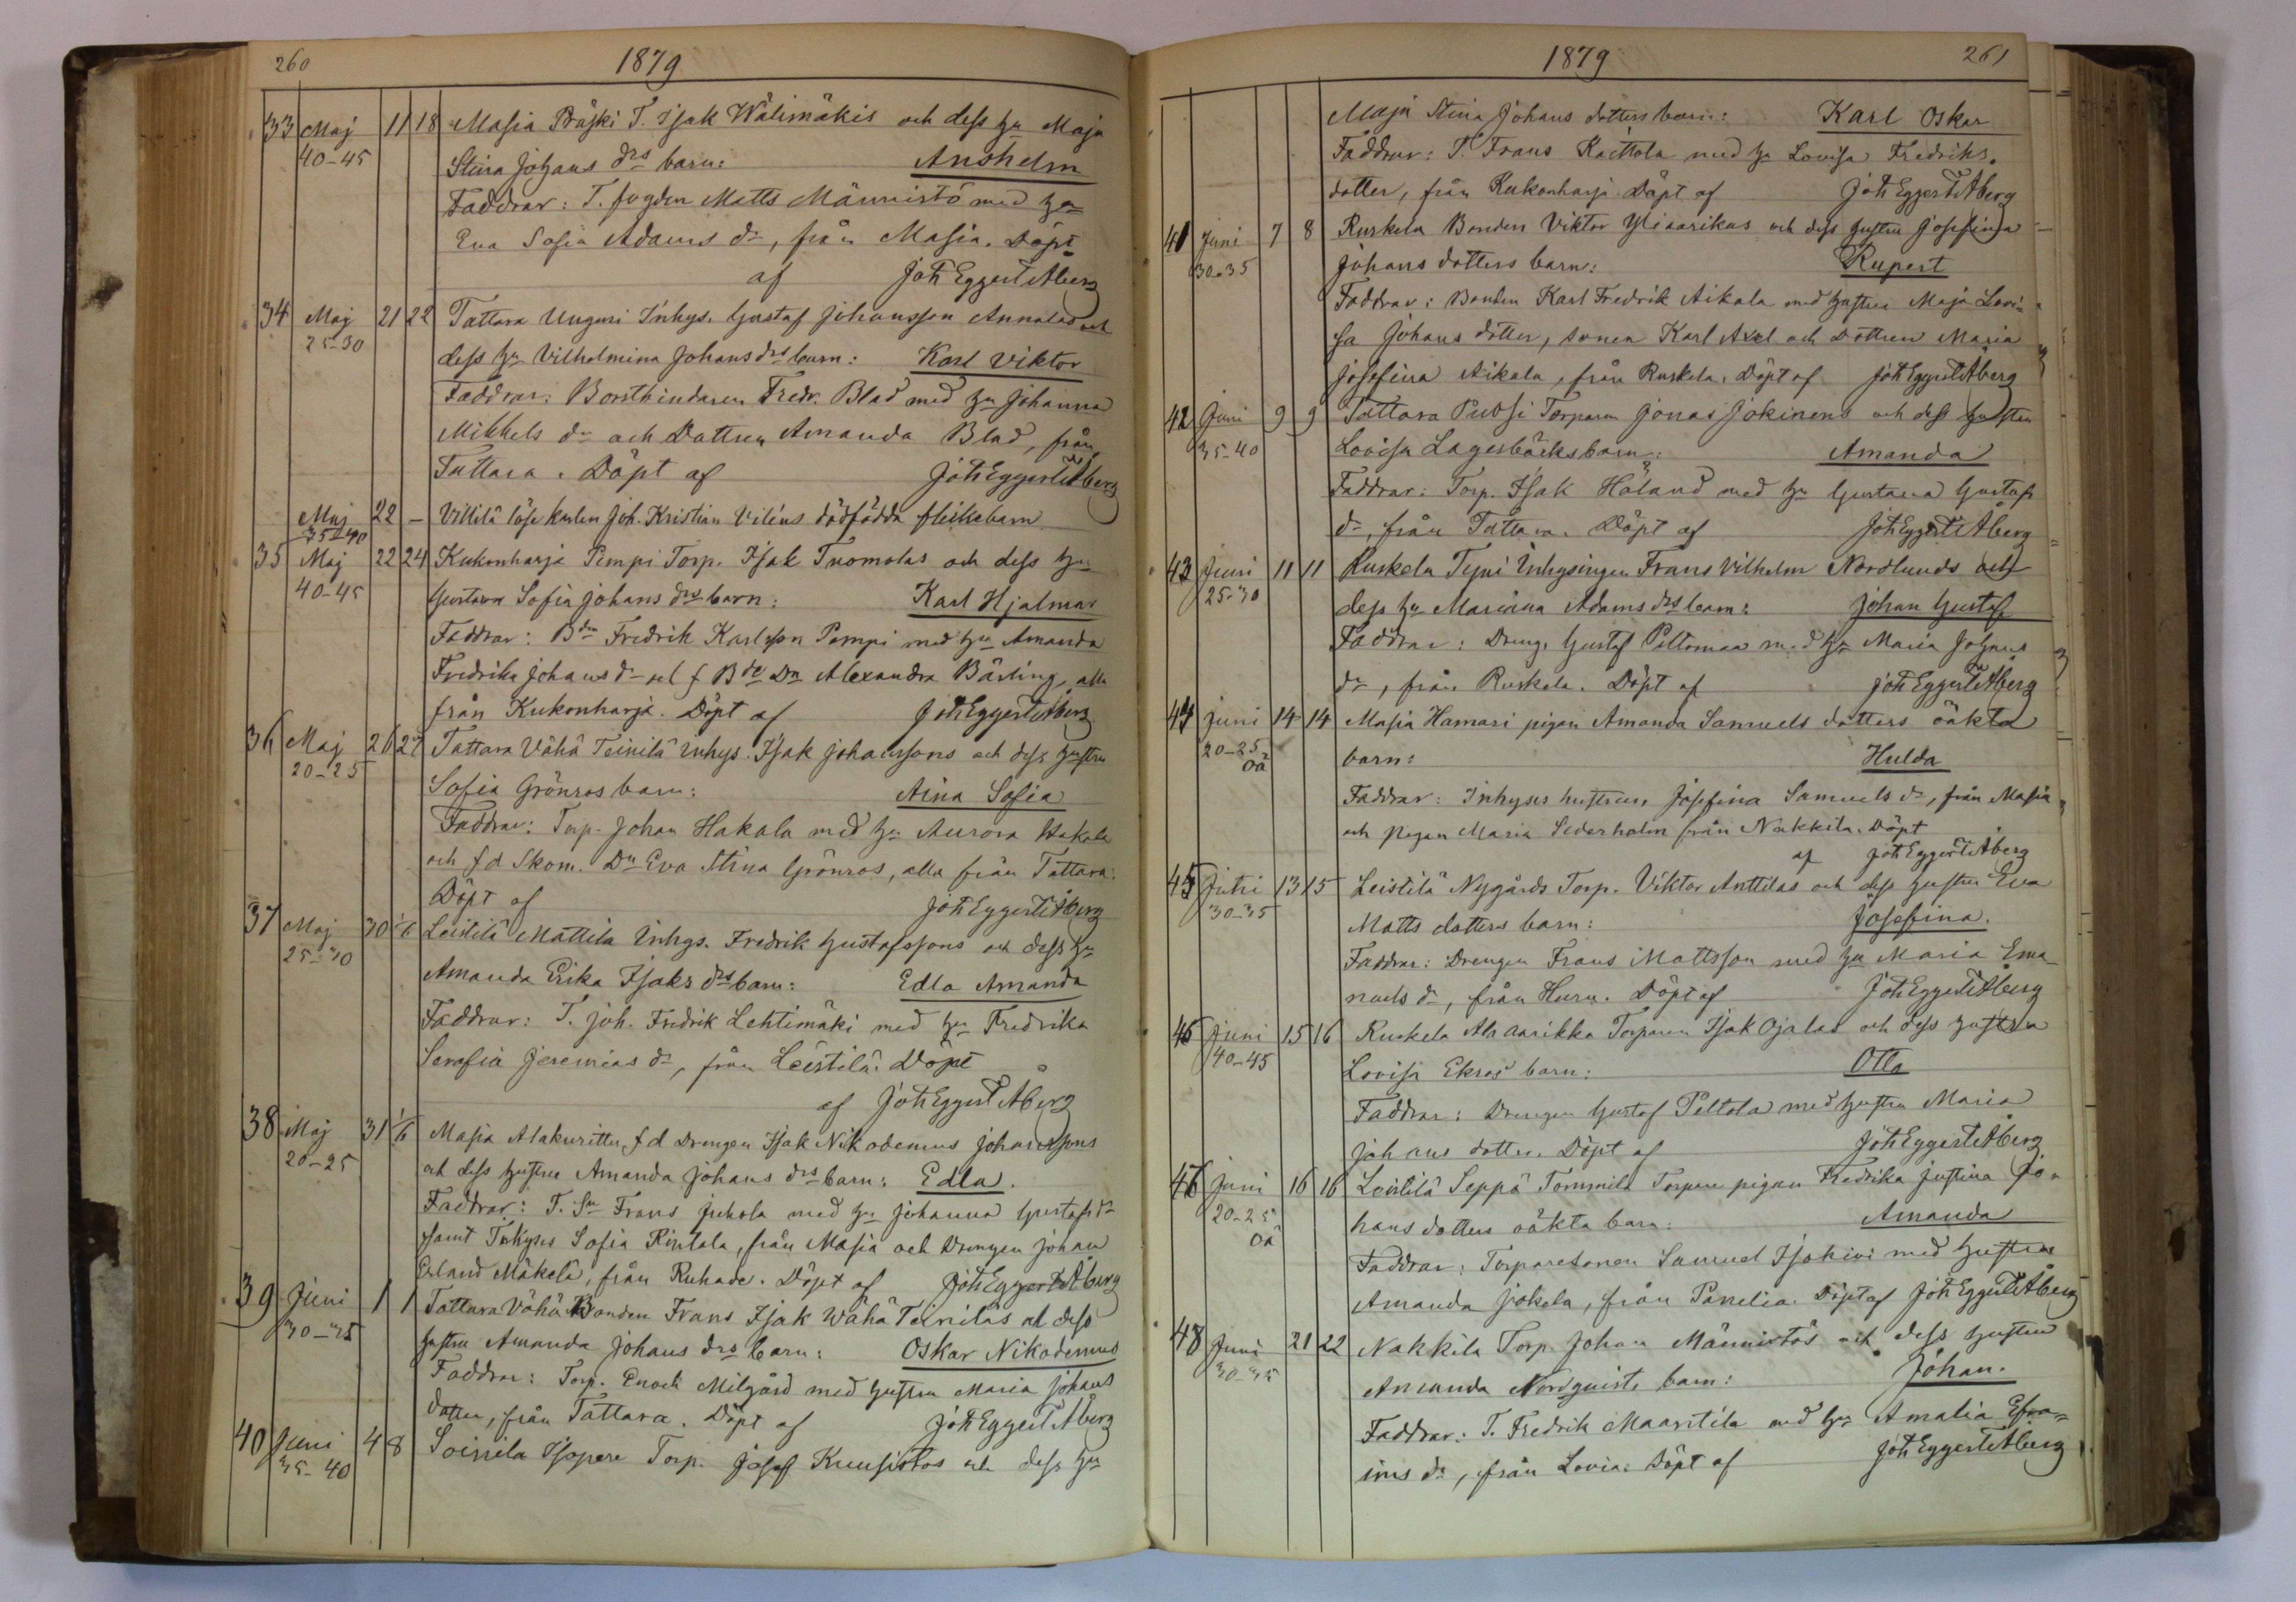 260
1879
33 Maj 11 18 Masia Päjki T. Isak Wälimäkis och dess hu Maja
40-45 Stina Johans drs barn: Anshelm
Faddrar: T. fogden Matts Männistö med hu
Eva Sofia Adams dr, från Masia. Döpt
af Joh Eggert Åberg
34 Maj 21 22 Tattara Unguri Inhys. Gustaf Johansson Annalas och
25-30 dess hu Vilhelmina Johans drs barn: Karl Viktor
Faddrar: Borstbindaren Fredr. Blad med hu Johanna
Mikkels dr och Dottren Amanda Blad, från
Tattara. Döpt af Joh Eggert Åberg
Maj 22 – Villilä löse karlen Joh. Kristian Viléns dödfödda flickebarn
35-40
35 Maj 22 24 Kukonharja Pempi Torp. Isak Tuomolas och dess hu
40-45 Gustava Sofia Johans drs barn: Karl Hjalmar
Faddrar: Bdn Fredrik Karlsson Pempi med hu Amanda
Fredrika Johans dr och f Bde Dn Alexandra Bärling, alla
från Kukonharja. Döpt af Joh Eggert Åberg
36 Maj 26 27 Tattara Vähä Teinilä Inhys. Isak Johanssons och dess hustru
20-25 Sofia Grönros barn: Aina Sofia
Faddrar: Torp. Johan Hakala med hu Aurora Hakala
och f d Skom. Dn Eva Stina Grönros, alla från Tattara.
Döpt af Joh Eggert Åberg
37 Maj 30 1/6 Leistilä Mattila Inhys. Fredrik Gustafssons och dess hu
25-30 Amanda Erika Isaks drs barn: Edla Amanda
Faddrar: T. Joh. Fredrik Lehtimäki med hu Fredrika
Serafia Jeremias dr, från Leistilä. Döpt
af Joh Eggert Åberg
38 Maj 31 1/6 Masia Alakurittu f d Drengen Isak Nikodemus Johanssons
20-25 och dess hustru Amanda Johans drs barn: Edla.
Faddrar: T. Sn Frans Juhola med hu Johanna Gustafs dr
samt Inhyses Sofia Rintala, från Masia och Drengen Johan
Erland Mäkelä, från Ruhade. Döpt af Joh Eggert Åberg
39 Juni 1 1 Tattara Vähä Bonden Frans Isak Wähä Teiniläs och dess
30-35 hustru Amanda Johans drs barn: Oskar Nikodemus
Faddrar: Torp. Enock Milgård med hustru Maria Johans
dotter, från Tattara. Döpt af Joh Eggert Åberg
40 Juni 4 8 Soinila Isopere Torp. Josef Kuusistos och dess hu
35-40
1879
261
Maja Stina Johans dotters barn: Karl Oskar
Faddrar: T. Frans Raittola med hu Lovisa Fredriks
dotter, från Kukonharja. Döpt af Joh Eggert Åberg
41 Juni 7 8 Ruskela Bonden Viktor Yliaarikas och dess hustru Josefina
30-35 Johans dotters barn: Rupert
Faddrar: Bonden Karl Fredrik Aikala med hustru Maja Lovi-
sa Johans dotter, sonen Karl Axel och Dottren Maria
Josefina Aikala, från Ruskela. Döpt af Joh Eggert Åberg
42 Juni 9 9 Tattara Pubsi Torparen Jonas Jokinens och dess hustru
35-40 Lovisa Lagerbäcks barn: Amanda
Faddrar: Torp. Isak Höland med hu Gustava Gustafs
dr, från Tattara. Döpt af Joh Eggert Åberg
43 Juni 11 11 Ruskela Tyni Inhysingen Frans Vilhelm Nordlunds och
25-30 dess hu Mariana Adams drs barn: Johan Gustaf
Faddrar: Dreng. Gustaf Peltomaa med hu Maria Johans
dr, från Ruskela. Döpt af Joh Eggert Åberg
44 Juni 14 14 Masia Hamari pigan Amanda Samuels dotters oäkta
20-25 barn: Hulda
oä
Faddrar: Inhyses hustrun Josefina Samuels dr, från Masia
och pigan Maria Sederholm från Nakkila. Döpt
af Joh Eggert Åberg
45 Juni 13 15 Leistilä Nygårds Torp. Viktor Anttilas och dess hustru Eva
30-35 Matts dotters barn: Josefina.
Faddrar: Drengen Frans Mattsson med hu Maria Ema-
nuels dr, från Huru. Döpt af Joh Eggert Åberg
46 Juni 15 16 Ruskela Ala aarikka Torparen Isak Ojalas och dess hustru
40-45 Lovisa Ekros barn: Otto
Faddrar: Drengen Gustaf Peltola med hustru Maria
Johans dotter. Döpt af Joh Eggert Åberg
47 Juni 16 16 Leistilä Seppä Tommila Torpare pigan Fredrika Justina Jo-
20-25 hans dotters oäkta barn: Amanda
oä
Faddrar: Torparesonen Samuel Isokivi med hustru
Amanda Jokela, från Panelia. Döpt af Joh Eggert Åberg
48 Juni 21 22 Nakkila Torp. Johan Männistös och dess hustru
30-35 Amanda Nordquists barn: Johan.
Faddrar: T. Fredrik Maantila med hu Amalia Efra-
ims dr, från Lovia. Döpt af Joh Eggert Åberg